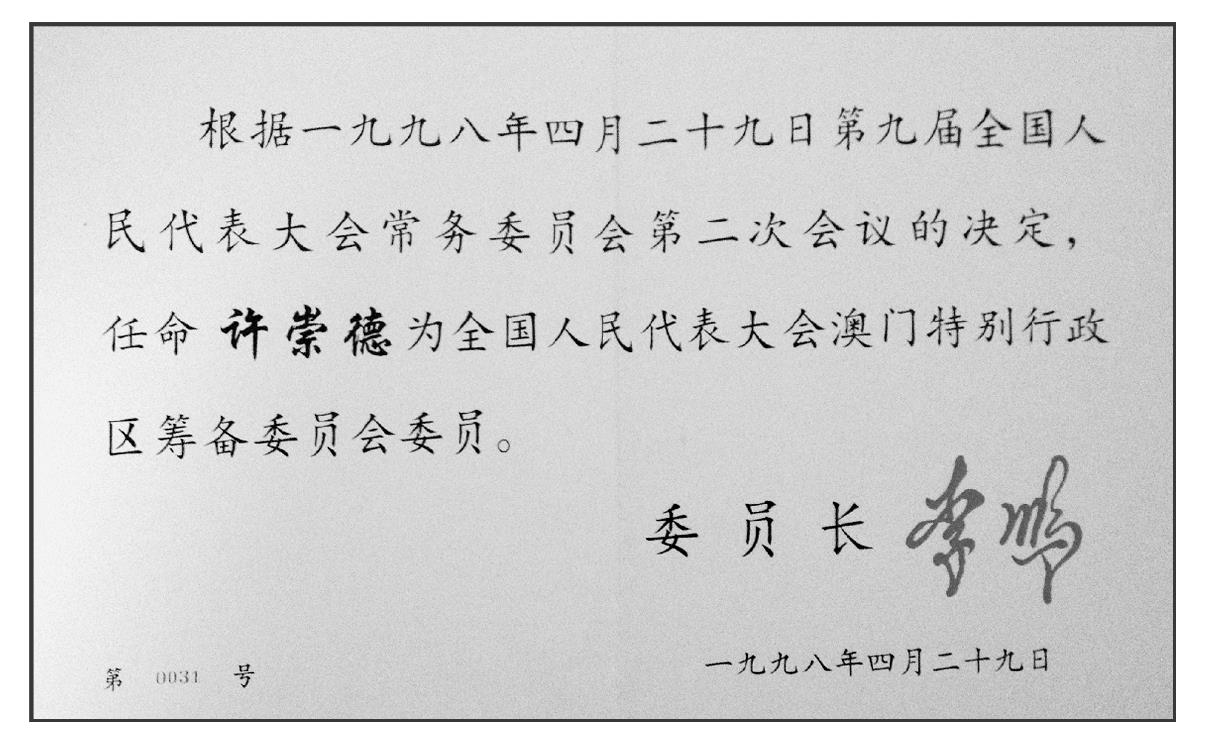 根据一九九八年四月二十九日第九届全国人
民代表大会常务委员会第二次会议的决定，
任命 许崇德 为全国人民代表大会澳门特别行政
区筹备委员会委员。
委员长 李鹏
一九九八年四月二十九日
第 0031 号